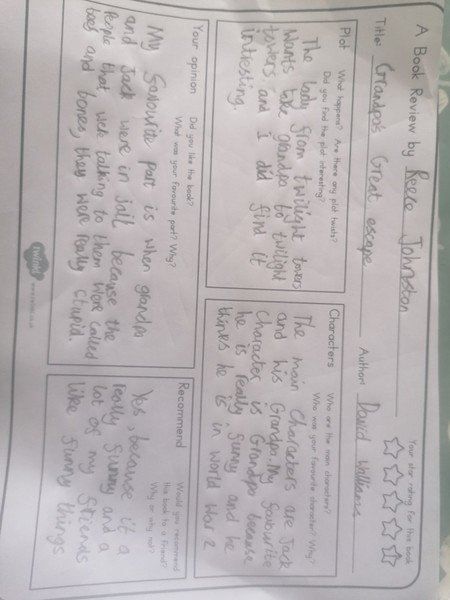 A Book Review by Reece Johnston
Title: Grandpa's Great escape Author: David Williams
Your star rating for this book
Plot
What happens? Are there any plot twists?
Did you find the plot interesting?
The lady from twilight towers
wants take grandpa to twilight
towers. and i did find it
intresting.
Characters
Who are the main characters?
Who was your favourite character? Why?
The main Characters are Jack
and his Grandpa. My favourite
Character is Grandpa because
he is really funny and he
thinks he is in World War 2
Your opinion
Did you like the book?
What was your favourite part? Why?
My favourite part is when grandpa
and Jack were in jail because the
people that were talking to them were called
toes and bones, they were really stupid.
Recommend
Would you recommend
this book to a friend?
Why or why not?
Yes, because it a
really funny and a
lot of my friends
like funny things
twinkl
www.twinkl.co.uk